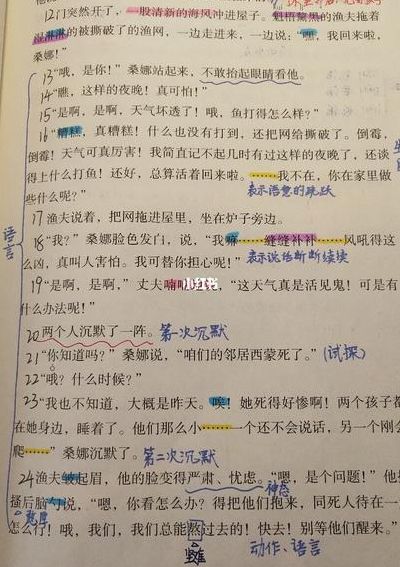 12门突然开了，一股清新的海风冲进屋子。魁梧黧黑的渔夫拖着
湿淋淋的被撕破了的渔网，一边走进来，一边说：“嘿，我回来啦，
桑娜！”
13“哦，是你！”桑娜站起来，不敢抬起眼睛看他。
14“瞧，这样的夜晚！真可怕！”
15“是啊，是啊，天气坏透了！哦，鱼打得怎么样？”
16“糟糕，真糟糕！什么也没有打到，还把网给撕破了。倒霉，
倒霉！天气可真厉害！我简直记不起几时有过这样的夜晚了，还谈
得上什么打鱼！还好，总算活着回来啦。……我不在，你在家里做
些什么呢？”
表示语意的跳跃
17渔夫说着，把网拖进屋里，坐在炉子旁边。
语言
18“我？”桑娜脸色发白，说，“我嘛……缝缝补补……风吼得这
么凶，真叫人害怕。我可替你担心呢！”
表示说话断断续续
19“是啊，是啊，”丈夫喃喃地说，“这天气真是活见鬼！可是有
什么办法呢！”
20两个人沉默了一阵。第一次沉默
21“你知道吗？”桑娜说，“咱们的邻居西蒙死了。”(试探)
22“哦？什么时候？”
23“我也不知道，大概是昨天。唉！她死得好惨啊！两个孩子都
在她身边，睡着了。他们那么小……一个还不会说话，另一个刚会
爬……”桑娜沉默了。第二次沉默
24渔夫皱起眉，他的脸变得严肃、忧虑。“嗯，是个问题！”他
神态
搔搔后脑勺说，“嗯，你看怎么办？得把他们抱来，同死人待在一
怎么行！哦，我们，我们总能熬过去的！快去！别等他们醒来。”
动作、语言